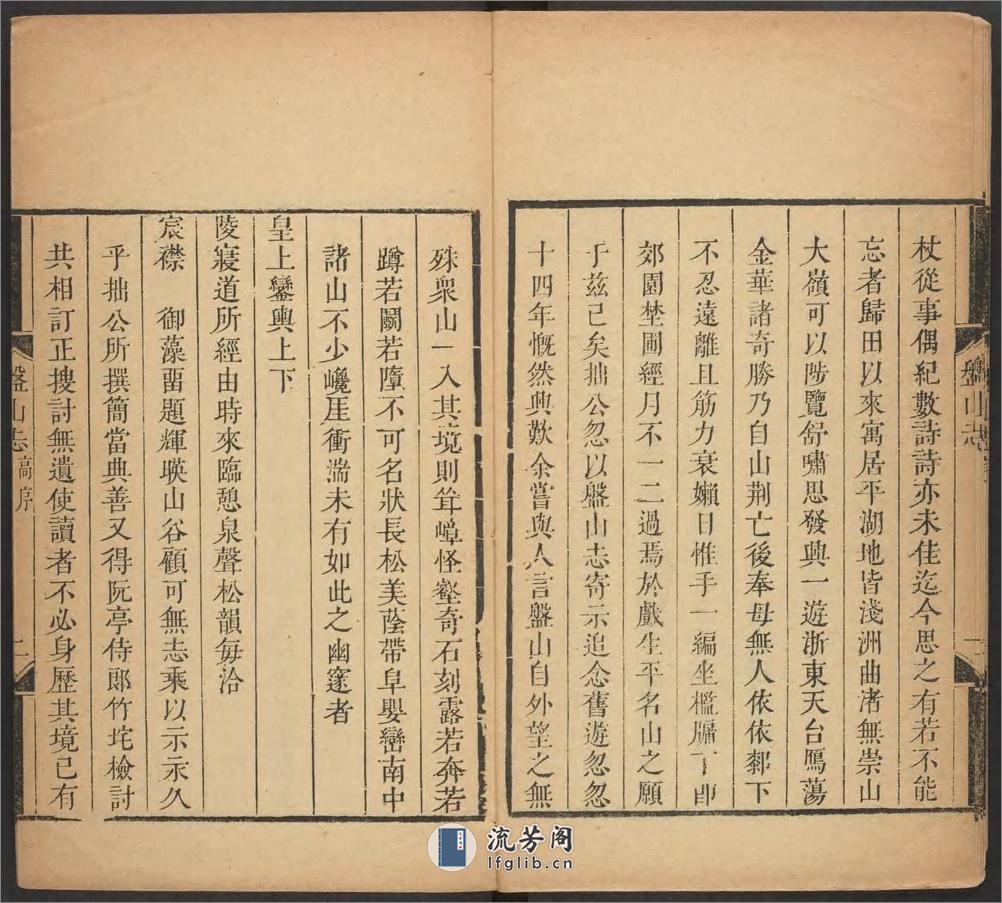 杖從事偶紀數詩詩亦未佳迄今思之有若不能
忘者歸田以來寓居平湖地皆淺洲曲渚無崇山
大嶺可以陟覽舒嘯思發興一遊浙東天台鴈蕩
金華諸奇勝乃自山荆亡後奉母無人依依郄下
不忍遠離且筋力衰嬾日惟手一編坐檻牖下卽
郊園埜圃經月不一二過焉於戲生平名山之願
于兹已矣拙公忽以盤山志寄示追念舊遊忽忽
十四年慨然興歎余嘗與人言盤山自外望之無
殊衆山一入其境則聳嶂怪壑奇石刻露若奔若
蹲若鬭若墮不可名狀長松美蔭帶阜嬰巒南中
諸山不少巉厓衝湍未有如此之幽窔者
皇上鑾輿上下
陵寢道所經由時來臨憩泉聲松韻每洽
宸襟 御藻畱題輝暎山谷顧可無志乘以示永久
乎拙公所撰簡當典善又得阮亭侍郎竹垞檢討
共相訂正搜討無遺使讀者不必身歷其境已有
盤山志
盤山志 高序 二
流芳阁
lfglib.cn